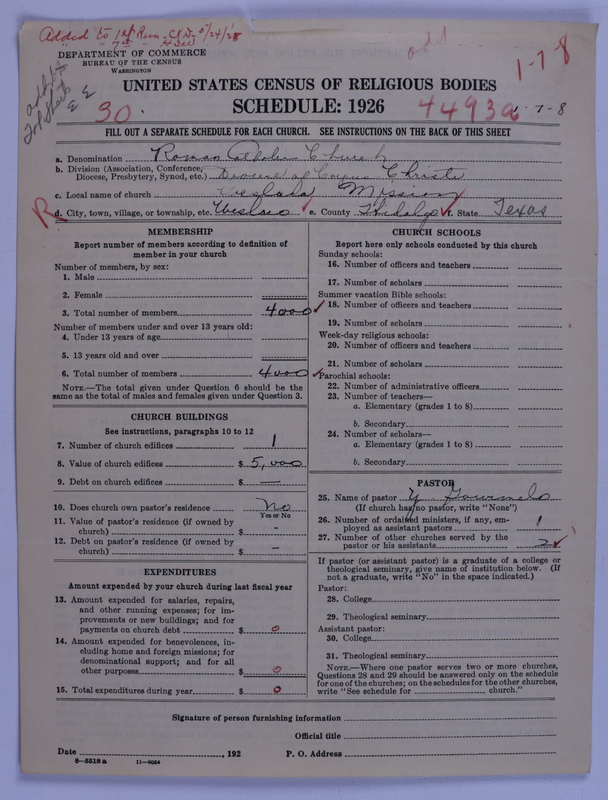 Added to 1st Run
add
1-7-8
DEPARTMENT OF COMMERCE
BUREAU OF THE CENSUS
WASHINGTON
UNITED STATES CENSUS OF RELIGIOUS BODIES
SCHEDULE: 1926
30.
44939a
7-8
FILL OUT A SEPARATE SCHEDULE FOR EACH CHURCH. SEE INSTRUCTIONS ON THE BACK OF THIS SHEET
a. Denomination Roman Catholic Church
b. Division (Association, Conference, Diocese, Presbytery, Synod, etc.) Diocese of Corpus Christi
c. Local name of church Mission
R d. City, town, village, or township, etc. Weslaco e. County Hidalgo f. State Texas
MEMBERSHIP
Report number of members according to definition of
member in your church
Number of members, by sex:
1. Male
2. Female
3. Total number of members 4000
Number of members under and over 13 years old:
4. Under 13 years of age
5. 13 years old and over
6. Total number of members 4000
NOTE.—The total given under Question 6 should be the
same as the total of males and females given under Question 3.
CHURCH BUILDINGS
See instructions, paragraphs 10 to 12
7. Number of church edifices 1
8. Value of church edifices $ 5,000
9. Debt on church edifices $ —
10. Does church own pastor's residence No
Yes or No
11. Value of pastor's residence (if owned by
church) $ -
12. Debt on pastor's residence (if owned by
church) $ -
EXPENDITURES
Amount expended by your church during last fiscal year
13. Amount expended for salaries, repairs,
and other running expenses; for im-
provements or new buildings; and for
payments on church debt $ 0
14. Amount expended for benevolences, in-
cluding home and foreign missions; for
denominational support; and for all
other purposes $ 0
15. Total expenditures during year $ 0
CHURCH SCHOOLS
Report here only schools conducted by this church
Sunday schools:
16. Number of officers and teachers
17. Number of scholars
Summer vacation Bible schools:
18. Number of officers and teachers
19. Number of scholars
Week-day religious schools:
20. Number of officers and teachers
21. Number of scholars
Parochial schools:
22. Number of administrative officers
23. Number of teachers—
a. Elementary (grades 1 to 8)
b. Secondary
24. Number of scholars—
a. Elementary (grades 1 to 8)
b. Secondary
PASTOR
25. Name of pastor Y.
(If church has no pastor, write "None")
26. Number of ordained ministers, if any, em-
ployed as assistant pastors 1
27. Number of other churches served by the
pastor or his assistants 2
If pastor (or assistant pastor) is a graduate of a college or
theological seminary, give name of institution below. (If
not a graduate, write "No" in the space indicated.)
Pastor:
28. College
29. Theological seminary
Assistant pastor:
30. College
31. Theological seminary
NOTE.—Where one pastor serves two or more churches,
Questions 28 and 29 should be answered only on the schedule
for one of the churches; on the schedules for the other churches,
write "See schedule for church."
Signature of person furnishing information
Official title
Date , 192 P. O. Address
8-5518a 11-9084